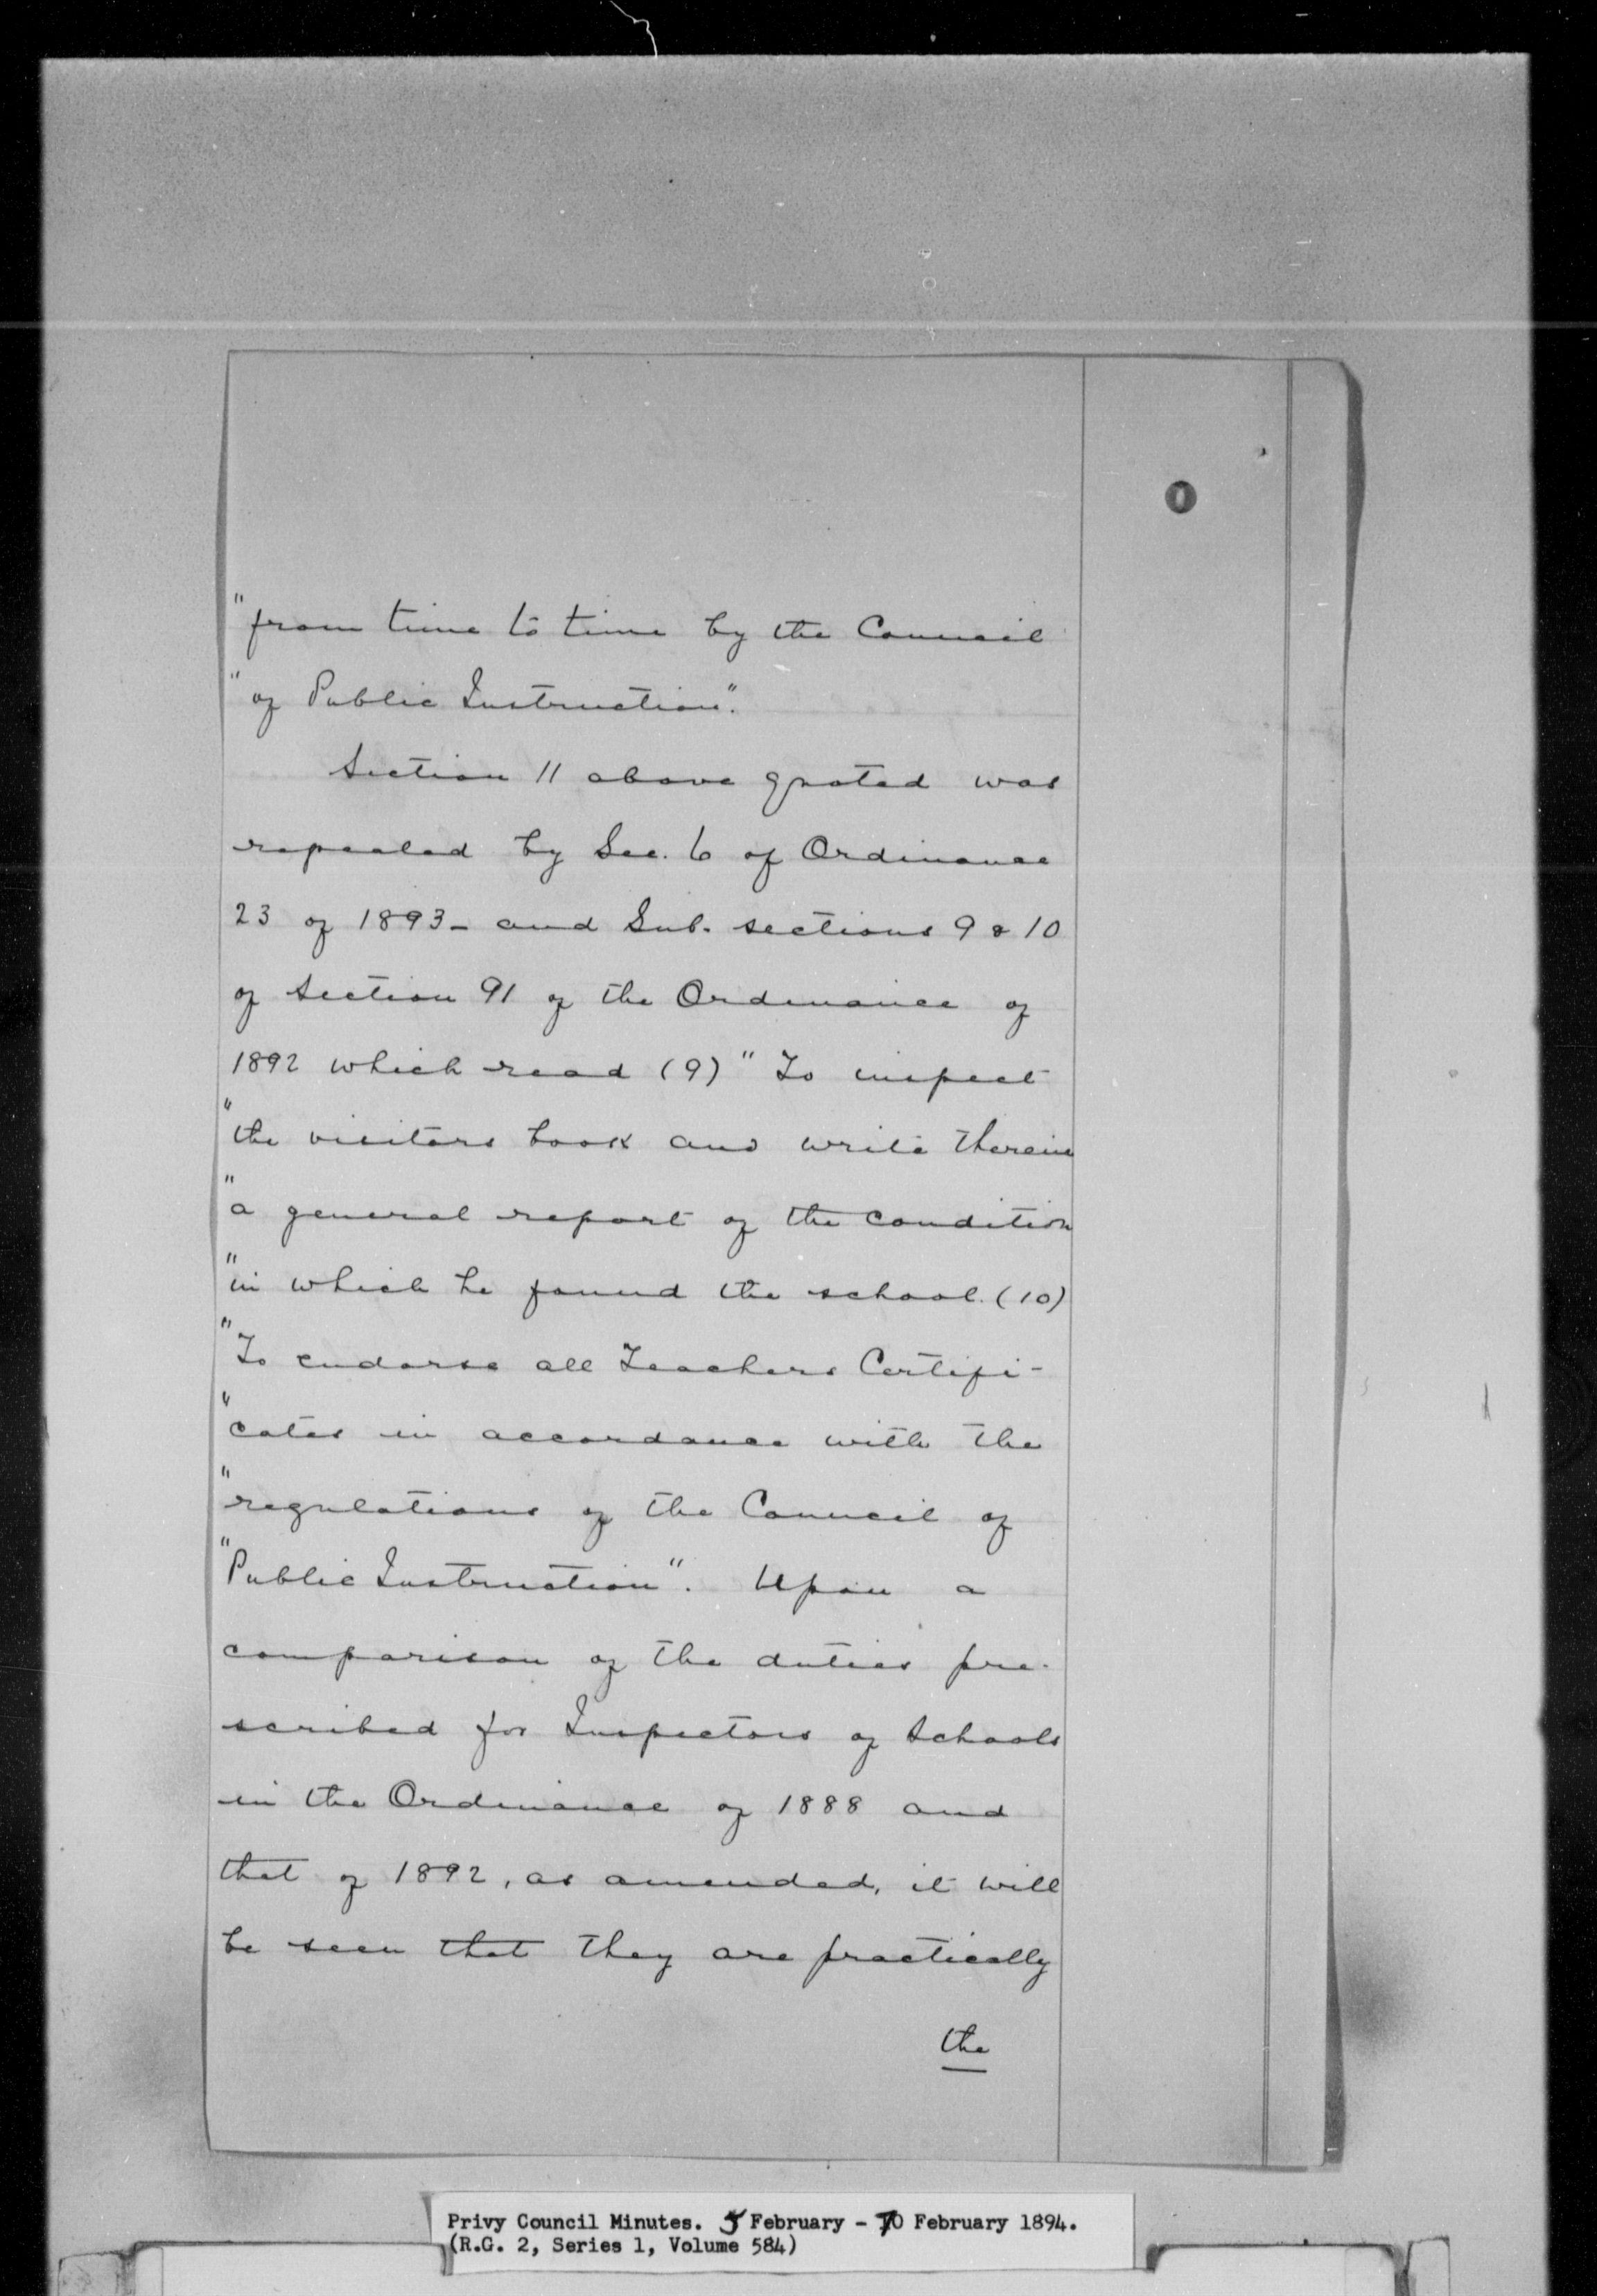 "from time to time by the Council
"of Public Instruction".
Section 11 above quoted was
repealed by Sec. 6 of Ordinance
23 of 1893 - and Sub. sections 9 & 10
of Section 91 of the Ordinance of
1892 which read (9) "To inspect
"the visitors book and write therein
"a general report of the condition
"in which he found the school. (10)
"To endorse all Teachers Certifi-
"cates in accordance with the
"regulations of the Council of
"Public Instruction". Upon a
comparison of the duties pre-
scribed for Inspectors of Schools
in the Ordinance of 1888 and
that of 1892, as amended, it will
be seen that they are practically
the
Privy Council Minutes. 5 February - 10 February 1894.
(R.G. 2, Series 1, Volume 584)